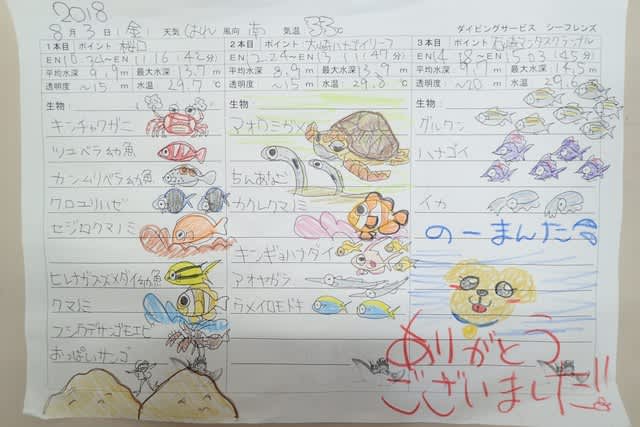 2018
8月3日(金) 天気(はれ) 風向 南 気温 33℃
ダイビングサービス シーフレンズ
1本目 ポイント 桜口
EN 10:34～EX 11:16(42分)
平均水深 9.9m 最大水深 13.7m
透明度 ～15m 水温 29.7℃
生物:
キンチャクガニ
ツユベラ幼魚
カンムリベラ幼魚
クロユリハゼ
セジロクマノミ
ヒレナガスズメダイ幼魚
クマノミ
フシウデサンゴモエビ
おっぱいサンゴ
2本目 ポイント 大崎ハナゴイリーフ
平均水深 8.9m 最大水深 13.9m
透明度 ～15m 水温 29.8℃
生物:
アオウミガメ
ちんあなご
カクレクマノミ
キンギョハナダイ
アオヤガラ
ウメイロモドキ
3本目 ポイント 石崎マンタスクランブル
平均水深 9.7m 最大水深 14.5m
透明度 ～20m 水温 29.6
生物:
グルクン
ハナゴイ
イカ
のーまんた
ありがとう
ございました!!